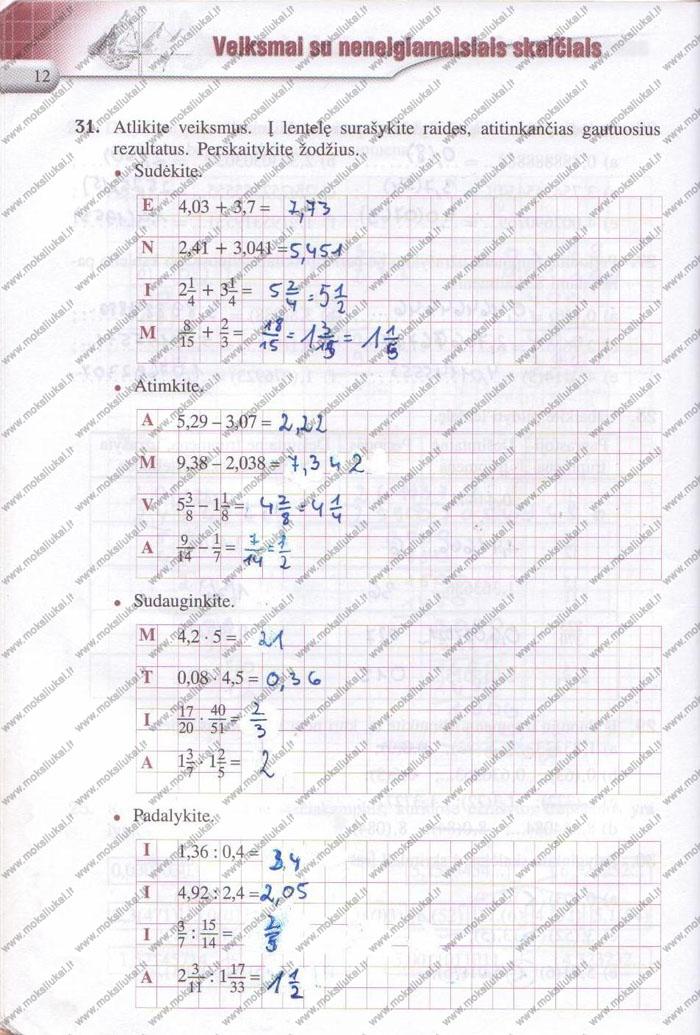 Veiksmai su neneigiamaisiais skaičiais
12
31. Atlikite veiksmus. Į lentelę surašykite raides, atitinkančias gautuosius
rezultatus. Perskaitykite žodžius.
• Sudėkite.
E 4,03 + 3,7 = 7,73
N 2,41 + 3,041 = 5,451
I 2 1/4 + 3 1/4 = 5 2/4 = 5 1/2
M 8/15 + 2/3 = 18/15 = 1 3/15 = 1 1/5
• Atimkite.
A 5,29 – 3,07 = 2,22
M 9,38 – 2,038 = 7,342
V 5 3/8 – 1 1/8 = 4 2/8 = 4 1/4
A 9/14 – 1/7 = 7/14 = 1/2
• Sudauginkite.
M 4,2 · 5 = 21
T 0,08 · 4,5 = 0,36
I 17/20 · 40/51 = 2/3
A 1 3/7 · 1 2/5 = 2
• Padalykite.
I 1,36 : 0,4 = 3,4
I 4,92 : 2,4 = 2,05
I 3/7 : 15/14 = 2/5
A 2 3/11 : 1 17/33 = 1 1/2
www.moksliukai.lt